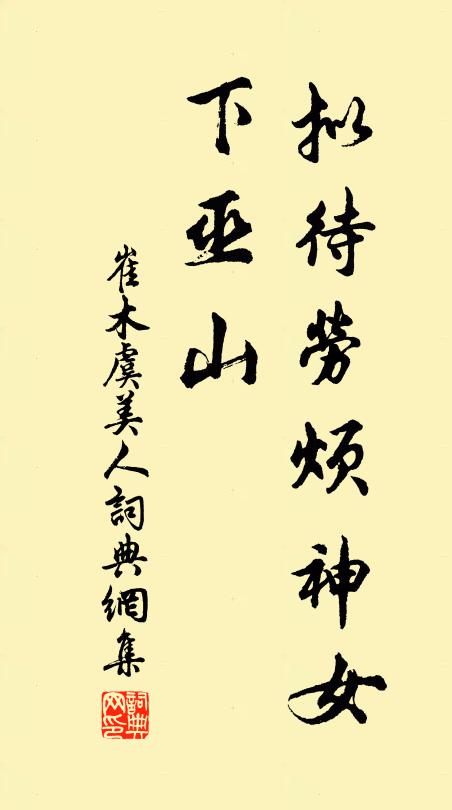 拟待勞煩神女
下巫山
崔木虞美人詞典網集
詞典网印